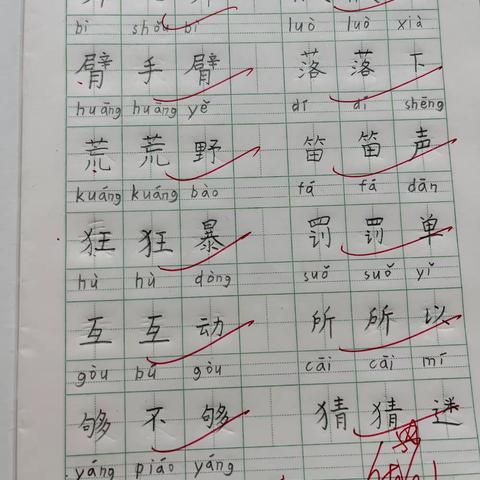 bì shǒu bì luò luò xià
臂 手 臂 落 落 下
huāng huāng yě dí dí shēng
荒 荒 野 笛 笛 声
kuáng kuáng bào fá fá dān
狂 狂 暴 罚 罚 单
hù hù dòng suǒ suǒ yǐ
互 互 动 所 所 以
gòu bù gòu cāi cāi mí
够 不 够 猜 猜 迷
yáng piáo yáng